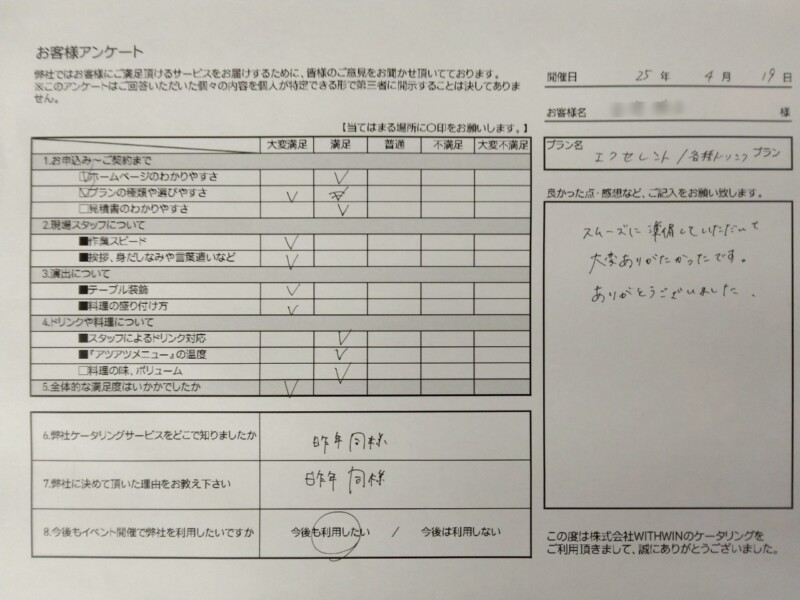 お客様アンケート
弊社ではお客様にご満足頂けるサービスをお届けするために、皆様のご意見をお聞かせ頂いております。
※このアンケートはご回答いただいた個々の内容を個人が特定できる形で第三者に開示することは決してありま
せん。
開催日 25 年 4 月 19 日
お客様名 様
【当てはまる場所に〇印をお願いします。】
大変満足 満足 普通 不満足 大変不満足
プラン名
エクセレント/各種ドリンク プラン
1.お申込み～ご契約まで
□ホームページのわかりやすさ ✓
□プランの種類や選びやすさ ✓
□見積書のわかりやすさ ✓
2.現場スタッフについて
■作業スピード ✓
■挨拶、身だしなみや言葉遣いなど ✓
3.演出について
■テーブル装飾 ✓
■料理の盛り付け方 ✓
4.ドリンクや料理について
■スタッフによるドリンク対応 ✓
■『アツアツメニュー』の温度 ✓
□料理の味、ボリューム ✓
5.全体的な満足度はいかかでしたか ✓
良かった点・感想など、ご記入をお願い致します。
スムーズに準備していただいて
大変ありがたかったです。
ありがとうございました。
6.弊社ケータリングサービスをどこで知りましたか 昨年同様
7.弊社に決めて頂いた理由をお教え下さい 昨年同様
8.今後もイベント開催で弊社を利用したいですか 今後も利用したい / 今後は利用しない
この度は株式会社WITHWINのケータリングを
ご利用頂きまして、誠にありがとうございました。